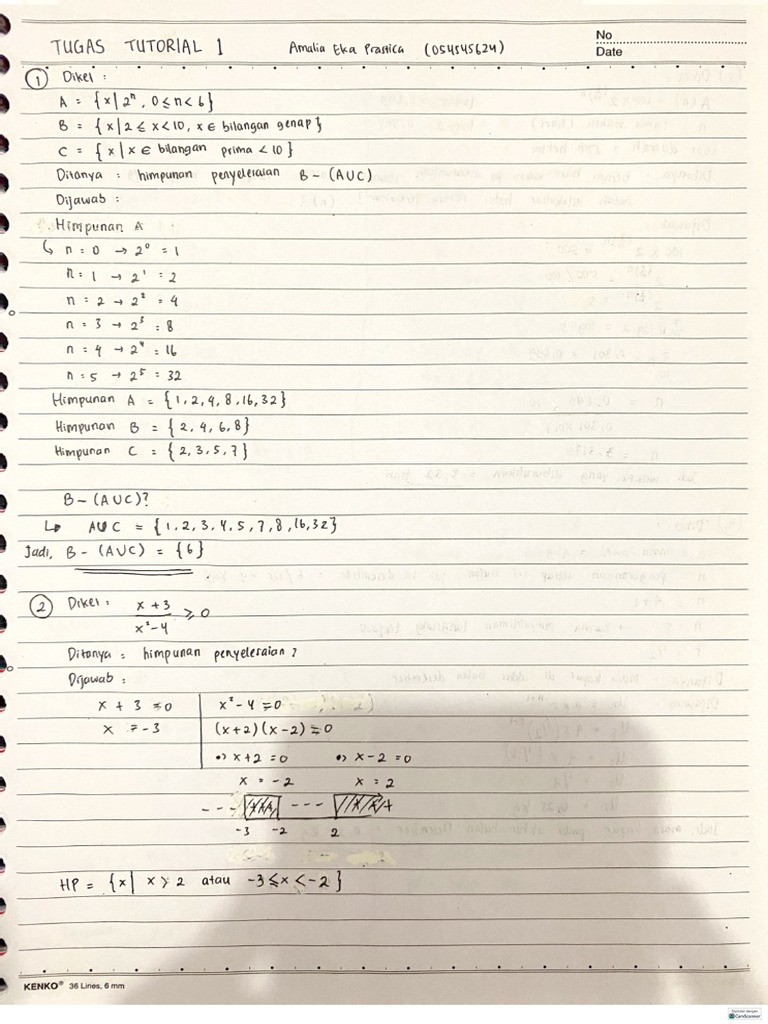 TUGAS TUTORIAL 1 Amalia Eka Prastica (054545624)
No
Date
1 Dikel :
A = {x | 2ⁿ, 0 ≤ n < 6}
B = {x | 2 ≤ x < 10, x ∈ bilangan genap}
C = {x | x ∈ bilangan prima < 10}
Ditanya : himpunan penyelesaian B - (AUC)
Dijawab :
Himpunan A
↳ n = 0 → 2⁰ = 1
n = 1 → 2¹ = 2
n = 2 → 2² = 4
n = 3 → 2³ = 8
n = 4 → 2⁴ = 16
n = 5 → 2⁵ = 32
Himpunan A = {1, 2, 4, 8, 16, 32}
Himpunan B = {2, 4, 6, 8}
Himpunan C = {2, 3, 5, 7}
B - (AUC)?
↳ AUC = {1, 2, 3, 4, 5, 7, 8, 16, 32}
Jadi, B - (AUC) = {6}
2 Diket : x + 3
≥ 0
x² - 4
Ditanya : himpunan penyelesaian ?
Dijawab :
x + 3 = 0 x² - 4 = 0
x = -3 (x+2) (x-2) = 0
•) x+2 = 0 •) x-2 = 0
x = -2 x = 2
--- --- +
-3 -2 2
HP = {x | x > 2 atau -3 ≤ x < -2}
KENKO® 36 Lines, 6 mm
CamScanner